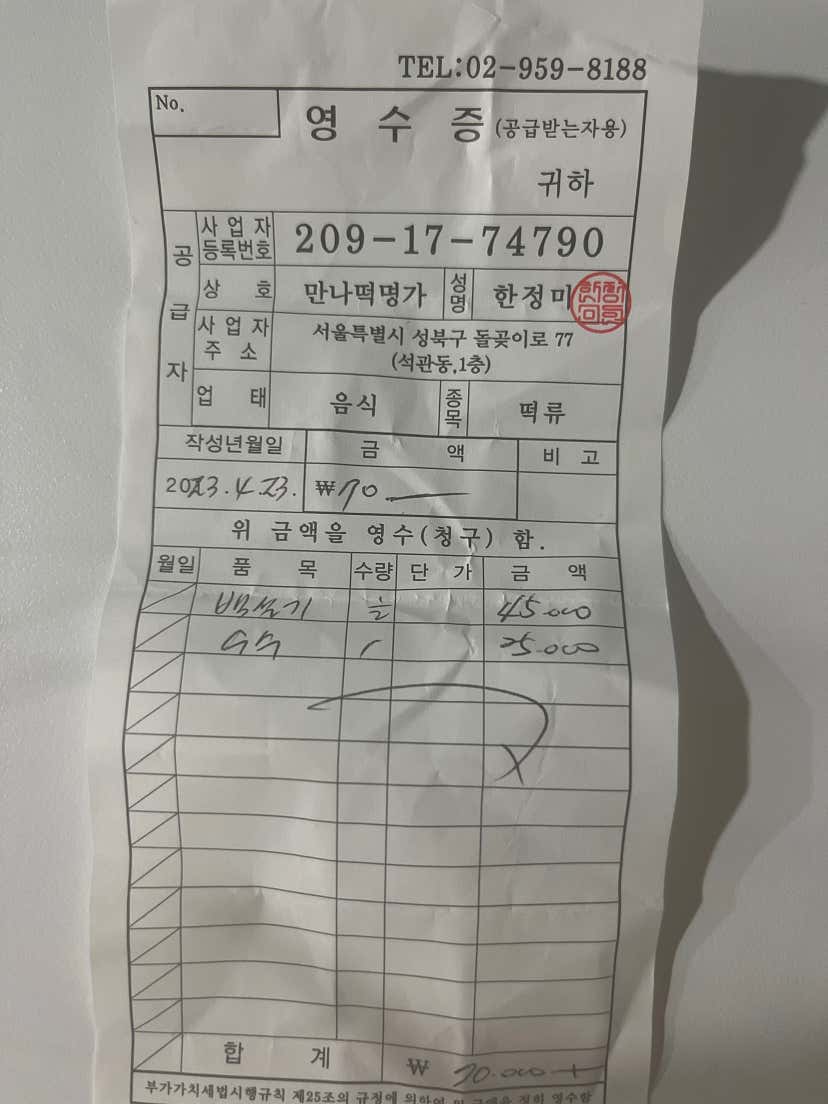 TEL:02-959-8188
No.
영 수 증 (공급받는자용)
귀하
공급자
사업자등록번호 209-17-74790
상 호 만나떡명가 성명 한정미
사업자주소 서울특별시 성북구 돌곶이로 77
(석관동,1층)
업 태 음식 종목 떡류
작성년월일 금 액 비 고
2023.4.23. ₩70
위 금액을 영수(청구) 함.
월일 품 목 수량 단 가 금 액
백설기 45.000
수수 1 25.000
합 계 ₩ 70.000
부가가치세법시행규칙 제25조의 규정에 의하여